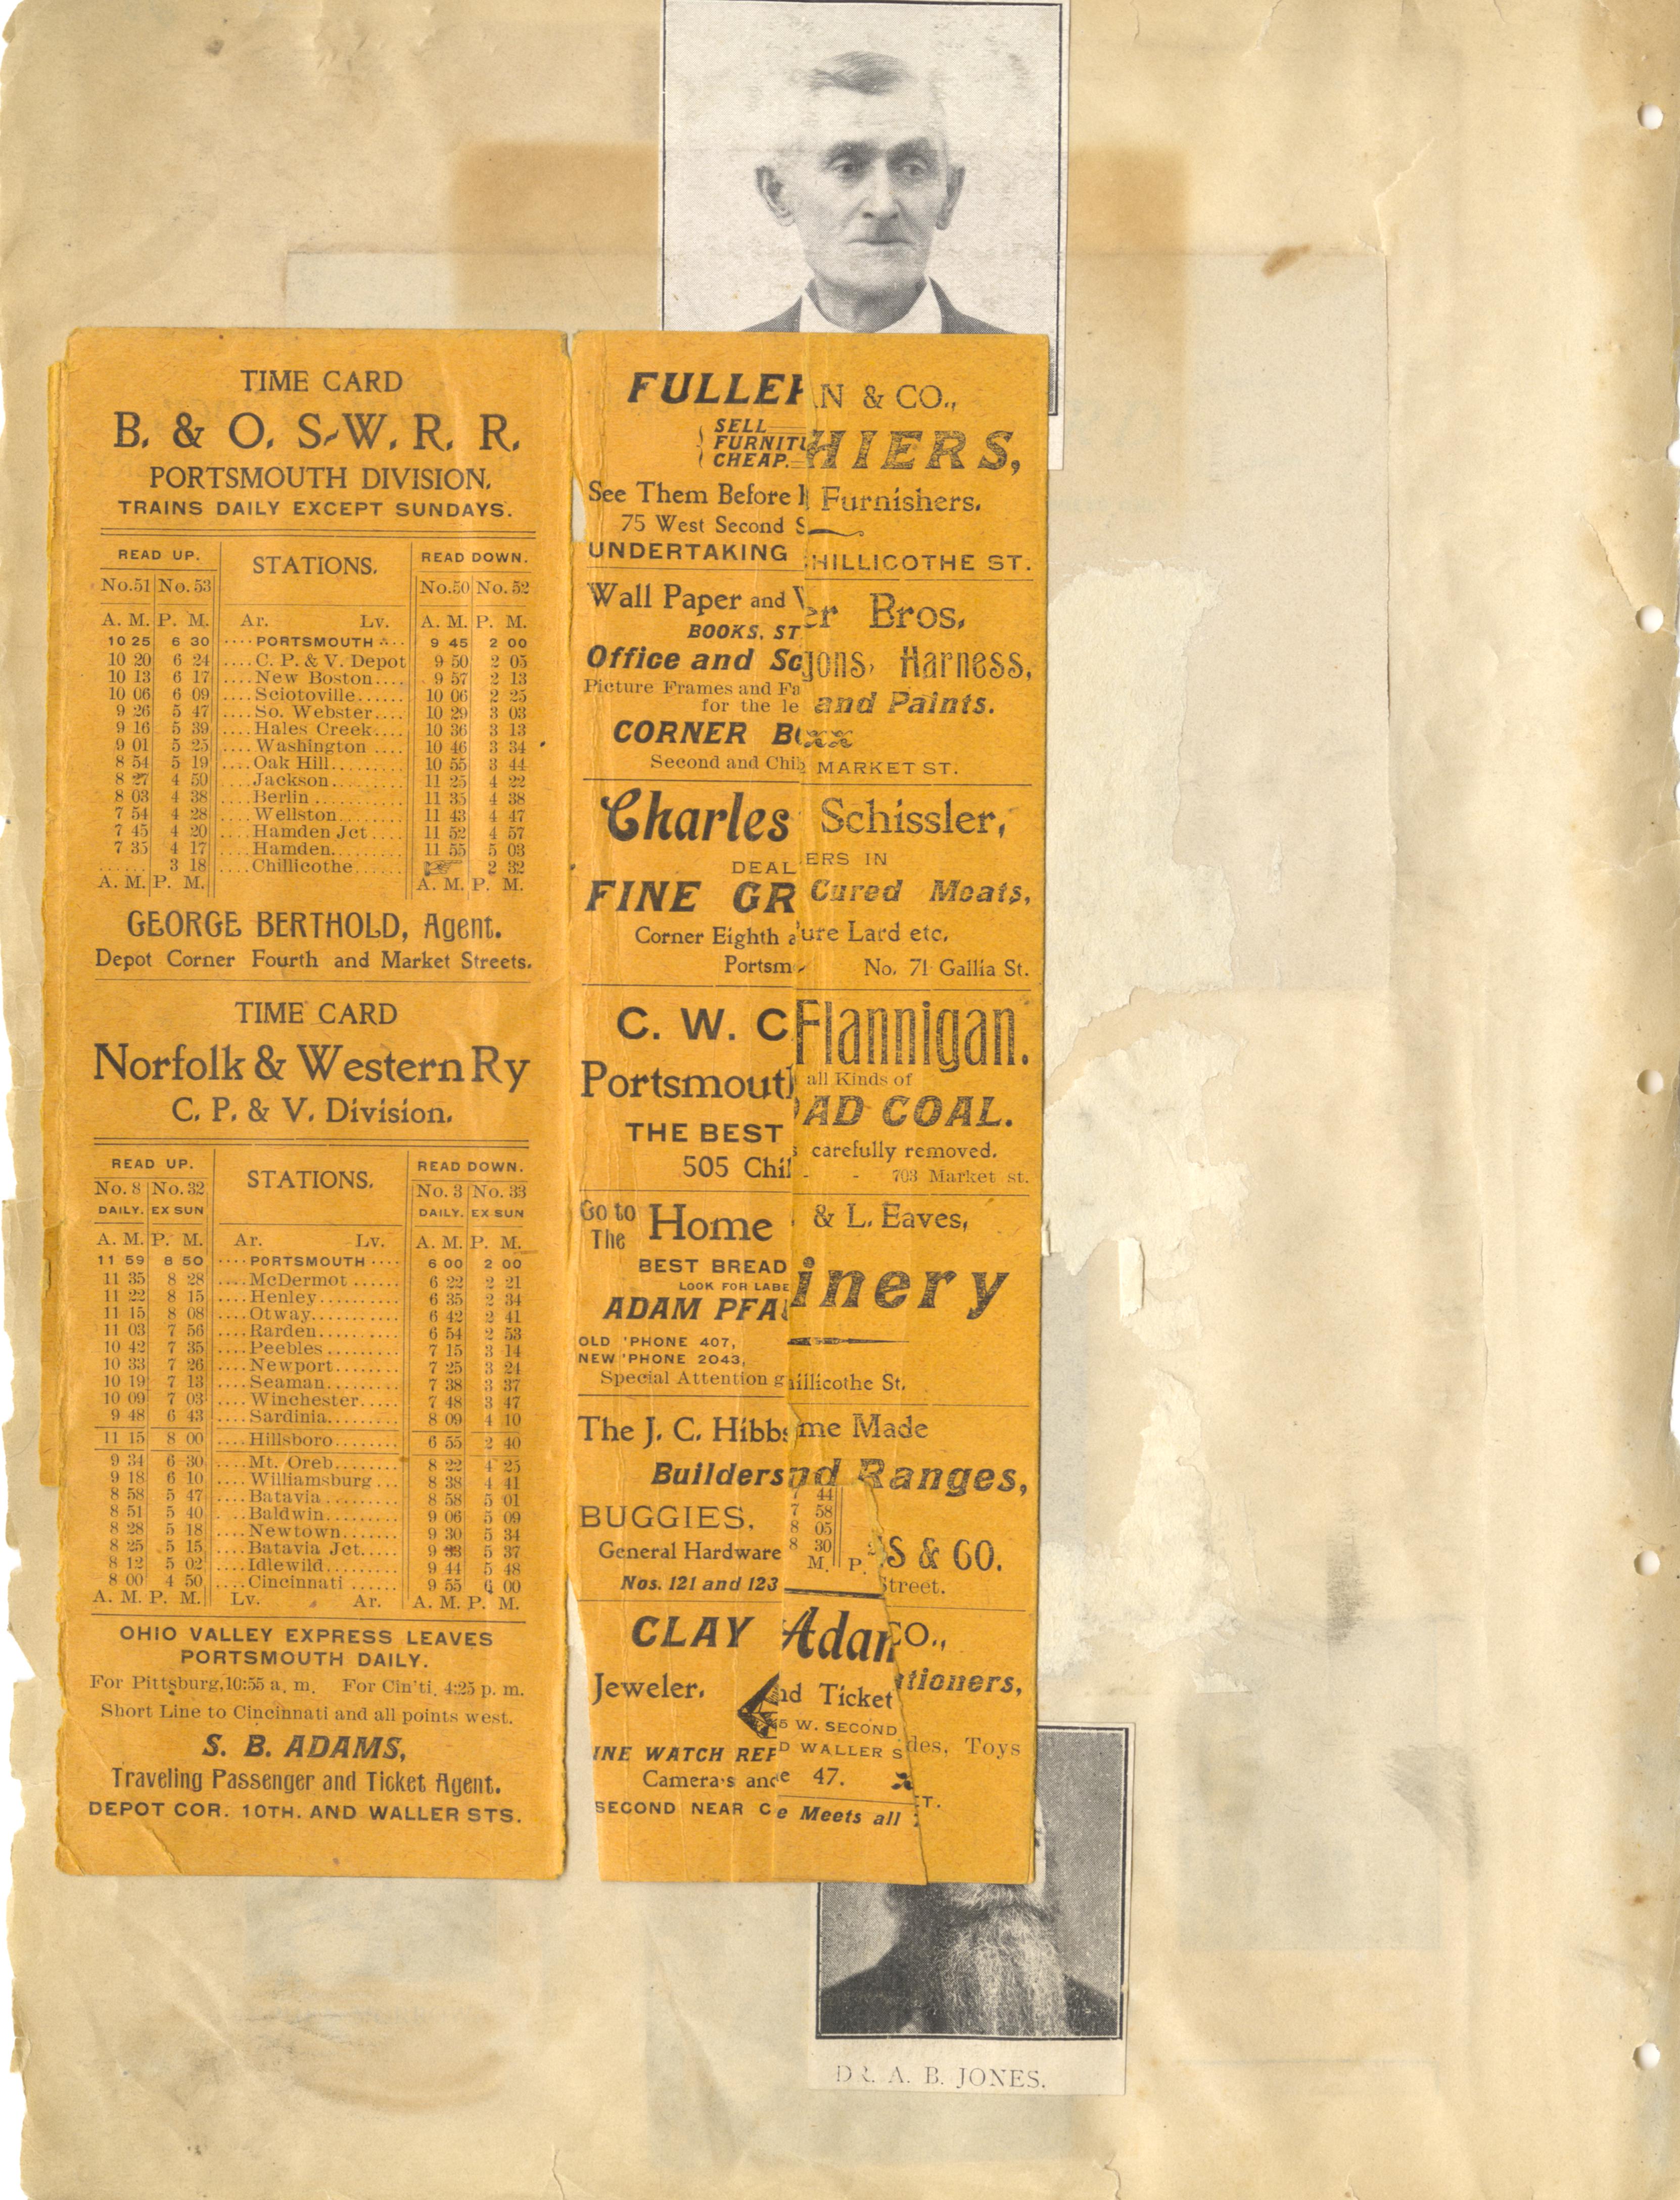 TIME CARD
B. & O. S-W. R. R.
PORTSMOUTH DIVISION.
TRAINS DAILY EXCEPT SUNDAYS.
READ UP. STATIONS. READ DOWN.
No.51 No. 53 No.50 No. 52
A. M. P. M. Ar. Lv. A. M. P. M.
10 25 6 30 ....PORTSMOUTH... 9 45 2 00
10 20 6 24 ....C. P. & V. Depot 9 50 2 05
10 13 6 17 ....New Boston.... 9 57 2 13
10 06 6 09 ....Sciotoville...... 10 06 2 25
9 26 5 47 ....So. Webster.... 10 29 3 03
9 16 5 39 ....Hales Creek.... 10 36 3 13
9 01 5 25 ....Washington .... 10 46 3 34
8 54 5 19 ....Oak Hill......... 10 55 3 44
8 27 4 50 ....Jackson......... 11 25 4 22
8 03 4 38 ....Berlin ........... 11 35 4 38
7 54 4 28 ....Wellston........ 11 43 4 47
7 45 4 20 ....Hamden Jct.... 11 52 4 57
7 35 4 17 ....Hamden......... 11 55 5 03
...... 3 18 ....Chillicothe...... ☞ 2 32
A. M. P. M. A. M. P. M.
GEORGE BERTHOLD, Agent.
Depot Corner Fourth and Market Streets.
TIME CARD
Norfolk & Western Ry
C. P. & V. Division.
READ UP. STATIONS. READ DOWN.
No. 8 No. 32 No. 3 No. 33
DAILY. EX SUN DAILY. EX SUN
A. M. P. M. Ar. Lv. A. M. P. M.
11 59 8 50 ....PORTSMOUTH .... 6 00 2 00
11 35 8 28 ....McDermot ...... 6 22 2 21
11 22 8 15 ....Henley.......... 6 35 2 34
11 15 8 08 ....Otway........... 6 42 2 41
11 03 7 56 ....Rarden.......... 6 54 2 53
10 42 7 35 ....Peebles ......... 7 15 3 14
10 33 7 26 ....Newport........ 7 25 3 24
10 19 7 13 ....Seaman......... 7 38 3 37
10 09 7 03 ....Winchester..... 7 48 3 47
9 48 6 43 ....Sardinia......... 8 09 4 10
11 15 8 00 ....Hillsboro........ 6 55 2 40
9 34 6 30 ....Mt. Oreb........ 8 22 4 25
9 18 6 10 ....Williamsburg... 8 38 4 41
8 58 5 47 ....Batavia.......... 8 58 5 01
8 51 5 40 ....Baldwin......... 9 06 5 09
8 28 5 18 ....Newtown....... 9 30 5 34
8 25 5 15 ....Batavia Jct..... 9 33 5 37
8 12 5 02 ....Idlewild......... 9 44 5 48
8 00 4 50 ....Cincinnati ...... 9 55 6 00
A. M. P. M. Lv. Ar. A. M. P. M.
OHIO VALLEY EXPRESS LEAVES
PORTSMOUTH DAILY.
For Pittsburg, 10:55 a. m. For Cin'ti, 4:25 p. m.
Short Line to Cincinnati and all points west.
S. B. ADAMS,
Traveling Passenger and Ticket Agent.
DEPOT COR. 10TH. AND WALLER STS.
FULLER
SELL
FURNITU
CHEAP.
See Them Before
75 West Second S
UNDERTAKING
Wall Paper and
BOOKS, ST
Office and Sc
Picture Frames and Fa
for the le
CORNER B
Second and Chil
Charles
DEAL
FINE GR
Corner Eighth a
Portsm
C. W. C
Portsmouth
THE BEST
505 Chil
Go to The Home
BEST BREAD
LOOK FOR LABE
ADAM PFA
OLD 'PHONE 407,
NEW 'PHONE 2043,
Special Attention g
The J. C. Hibbs
Builders
BUGGIES.
General Hardware
Nos. 121 and 123
CLAY
Jeweler.
INE WATCH REP
Camera's and
SECOND NEAR C
N & CO.,
HIERS,
Furnishers.
HILLICOTHE ST.
er Bros.
gons, Harness,
and Paints.
MARKET ST.
Schissler,
ERS IN
Cured Meats,
ure Lard etc.
No. 71 Gallia St.
Flannigan.
all Kinds of
OAD COAL.
s carefully removed.
- - 703 Market st.
& L. Eaves,
inery
hillicothe St.
me Made
nd Ranges,
7 44
7 58
8 05
8 30
M. P.
S & CO.
Street.
Adam
nd Ticket
W. SECOND
D WALLER S
e 47.
e Meets all
CO.,
ationers,
des, Toys
ET.
DR. A. B. JONES.